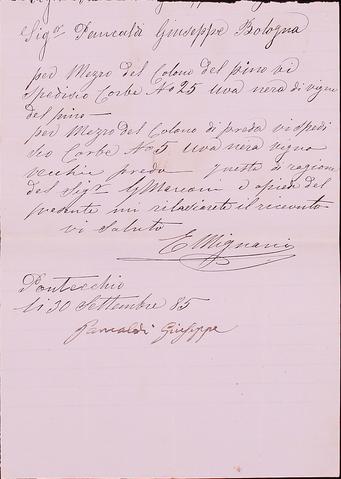 Sigr Pancaldi Giuseppe Bologna
per Mezzo del Colono del pino vi
spedisio Corbe No 25 uva nera di vigne
del pino
per Mezzo del Colono di preda vi spedi
sio Corbe No 5 uva nera vigna
vecchia preda queste di ragione
del Sigr G Marconi a piede del
presente mi rilasciarete il recevuto
vi saluto
E Mignani
Pontecchio
li 30 Settembre 85
Pancaldi Giuseppe